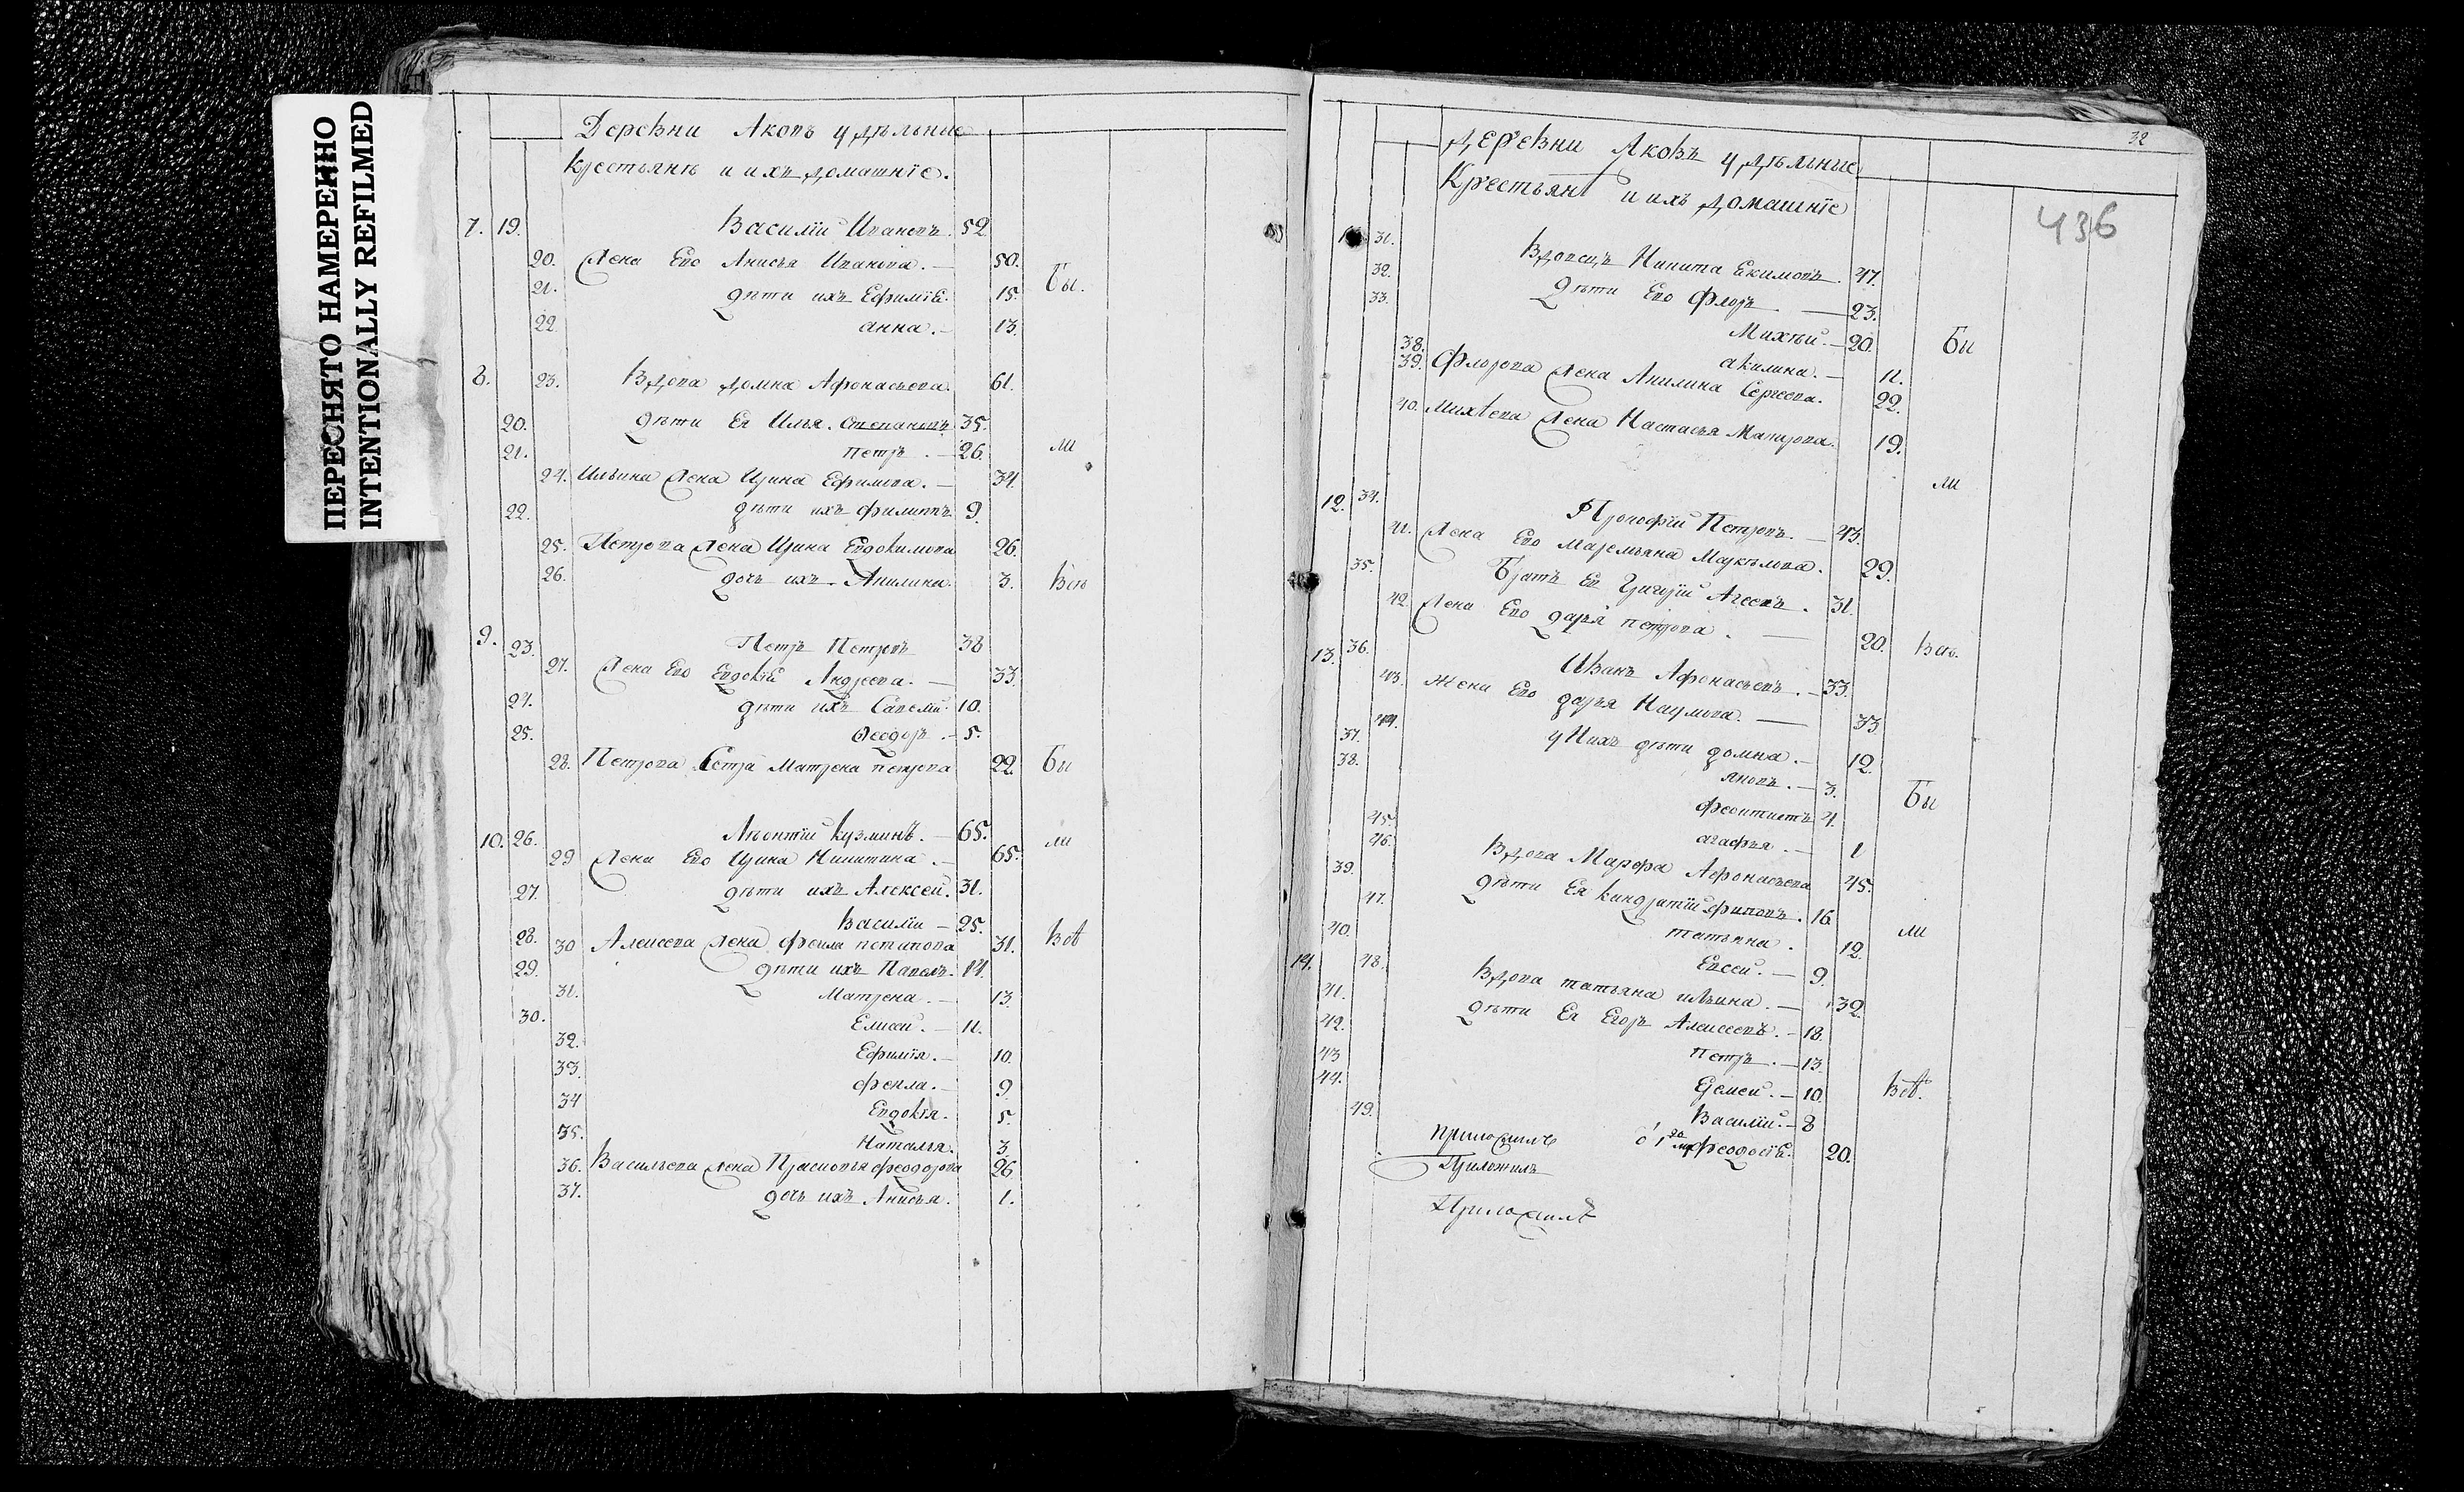 ПЕРЕСНЯТО НАМЕРЕННО
INTENTIONALLY REFILMED
Деревни Яковъ удѣльныε
крестьянѣ и ихъ домашніе.
7. 19. Василій Ивановъ. 52.
20. Жена Его Анисья Иванова. — 50.
Бы.
21. дѣти ихъ Ефиміѣ. 15.
22. анна. — 13.
8. 23. Вдова домна Афонасьева. 61.
20. дѣти Ея Илья. Степановъ 35.
21. петръ. — 26.
ли
24. Ильина Жена Ирина Ефимова. — 34.
22. дѣти ихъ филиппъ 9.
25. Петрова Жена Ирина Евдокимова 26.
26. дочь ихъ Акилина. 3.
Всѣ
9. 23. Петръ Петровъ 38
27. Жена Его Евдокія Андреева. — 33.
24. дѣти ихъ Савелій. 10.
25. Ѳеодоръ. — 5.
28. Петрова Сестра Матрена петрова 22.
Бы
10. 26. Леонтій кузминъ. — 65.
ли
29 Жена Его Ирина Никитина. — 65.
27. дѣти ихъ Алексей. 31.
28. Василій — 25.
30 Алексева Жена фекла 31.
Всѣ
29. дѣти ихъ Павелъ. 14.
31. Матрена. — 13.
30. Елисей. — 11.
32. Ефимія. — 10.
33. фекла. — 9.
34 Евдокія. 5.
35. Наталья. 3.
36. Васильева Жена Прасковья феодорова 26
37. дочь ихъ Анисья. 1.
32
436
деревни Яковъ удѣльные
Крестьянѣ и ихъ домашніе
31. Вдовецъ Никита Екимовъ. 47.
32. дѣти Его Флоръ — 23.
33. Михѣй. — 20.
Бы
38. акилина. — 11.
39. Флорова Жена Акилина Сергеева. 22.
40. Михѣева Жена Настасья Макарова. 19.
ли
12. 34. Прокофій Петровъ. — 43.
41. Жена Его Маремьяна Маркѣлова. 29.
35. Братъ Ево Григорій Агеевъ. 31.
42. Жена Его дарья петрова. — 20.
Всѣ.
13. 36. Иванъ Афонасьевъ. — 33.
43. жена Его дарья Наумова. — 33
44. у Нихъ дѣти домна. — 12.
37. яковъ. — 3.
Бы
38. феоктистъ 4.
45. агафья. — 1
46. Вдова Марфа Афонасьева 45.
39. дѣти Ея кандратій филповъ. 16.
ли
47. татьяна. 12.
40. Евсей. — 9.
14. 48. Вдова татьяна ильина. — 32.
41. дѣти Ея Егоръ Алексеевъ. — 18.
42. Петръ. — 13.
43 Еремей. — 10.
Всѣ.
44. Василій. — 8
49. феодосіѣ. 20.
приложилъ
Приложилъ
Приложилѣ